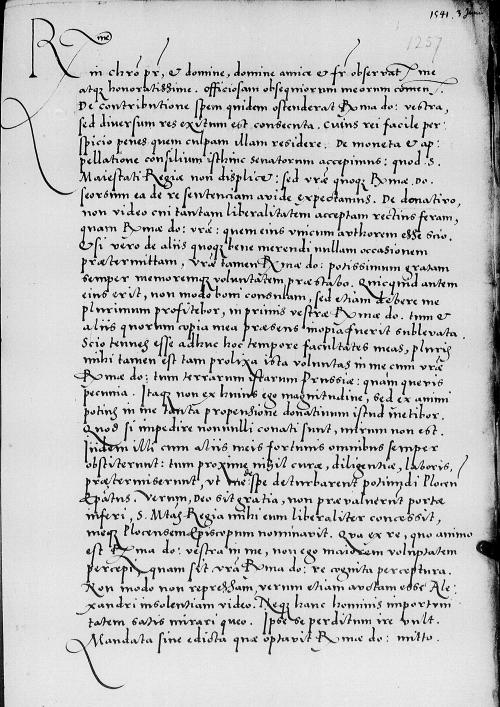 1541. 3 Junii
1257
R me
in chro pr, & domine, domine amice & fr observat me
atq honoratissime. Officiosam obsequiorum meorum comen.
De contributione spem quidem ostenderat R mae do: vestra,
sed diversum res exitum est consecuta. Cuius rei facile per
spicio penes quem culpam illam residere. De moneta & ap
pellatione consilium isthinc senatorum accepimus: quod S.
Maiestati Regiae non displice: sed vrae quoq R mae. Do.
seorsim ea de re sentenciam avide expectamus. De donativo,
non video cui tantam liberalitatem acceptam rectius feram,
quam R mae do: vrae: quem eius unicum authorem esse scio.
Etsi vero de aliis quoq bene merendi nullam occasionem
praetermittam, vrae tamen R mae do: potissimum gratam
semper memoremq voluntatem praestabo. Quicquid autem
eius erit, non modo boni consulam, sed etiam debere me
plurimum profitebor, in primis vestrae R mae do. tum &
aliis quorum copia mea praesens inopia fuerit sublevata.
Scio tenues esse adhuc hoc tempore facultates meas, pluris
mihi tamen est tam prolixa ista voluntas in me cum vrae
R mae do: tum terrarum istarum Prussiae: quam quevis
pecunia. Itaq non ex huius ego magnitudine, sed ex animi
potius in me tanta propensione donativum istud metibor.
Quod si impedire nonnulli conati sunt, mirum non est.
Iidem illi cum aliis meis fortunis omnibus semper
obstiterunt: tum proxime nihil curae, diligentiae, laboris,
praetermiserunt, ut me de spe deturbarent potiundi Plocen
Epatus. Verum, Deo sit gratia, non praevaluerunt portae
inferi, S. Mtas Regia mihi eum liberaliter concessit,
meq Plocensem Episcopum nominavit. Qva ex re, quo animo
est R ma do: vestra in me, non ego maiorem voluptatem
percepi, quam sit vra R ma do: re cognita perceptura.
Non modo non repressam, verum etiam auctam esse Ale
xandri insolentiam video. Neq hanc hominis importuni
tatem satis mirari queo. Ipse se perditum ire vult.
Mandata sive edicta quae optavit R ma do: mitto.